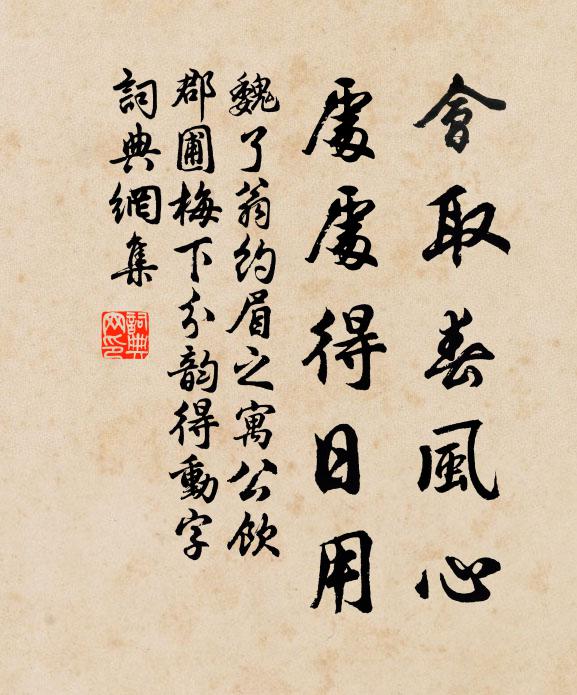 會取春風心
處處得日用
魏了翁約眉之寓公飲
郡圃梅下分韵得動字
詞典網集
詞典
网印